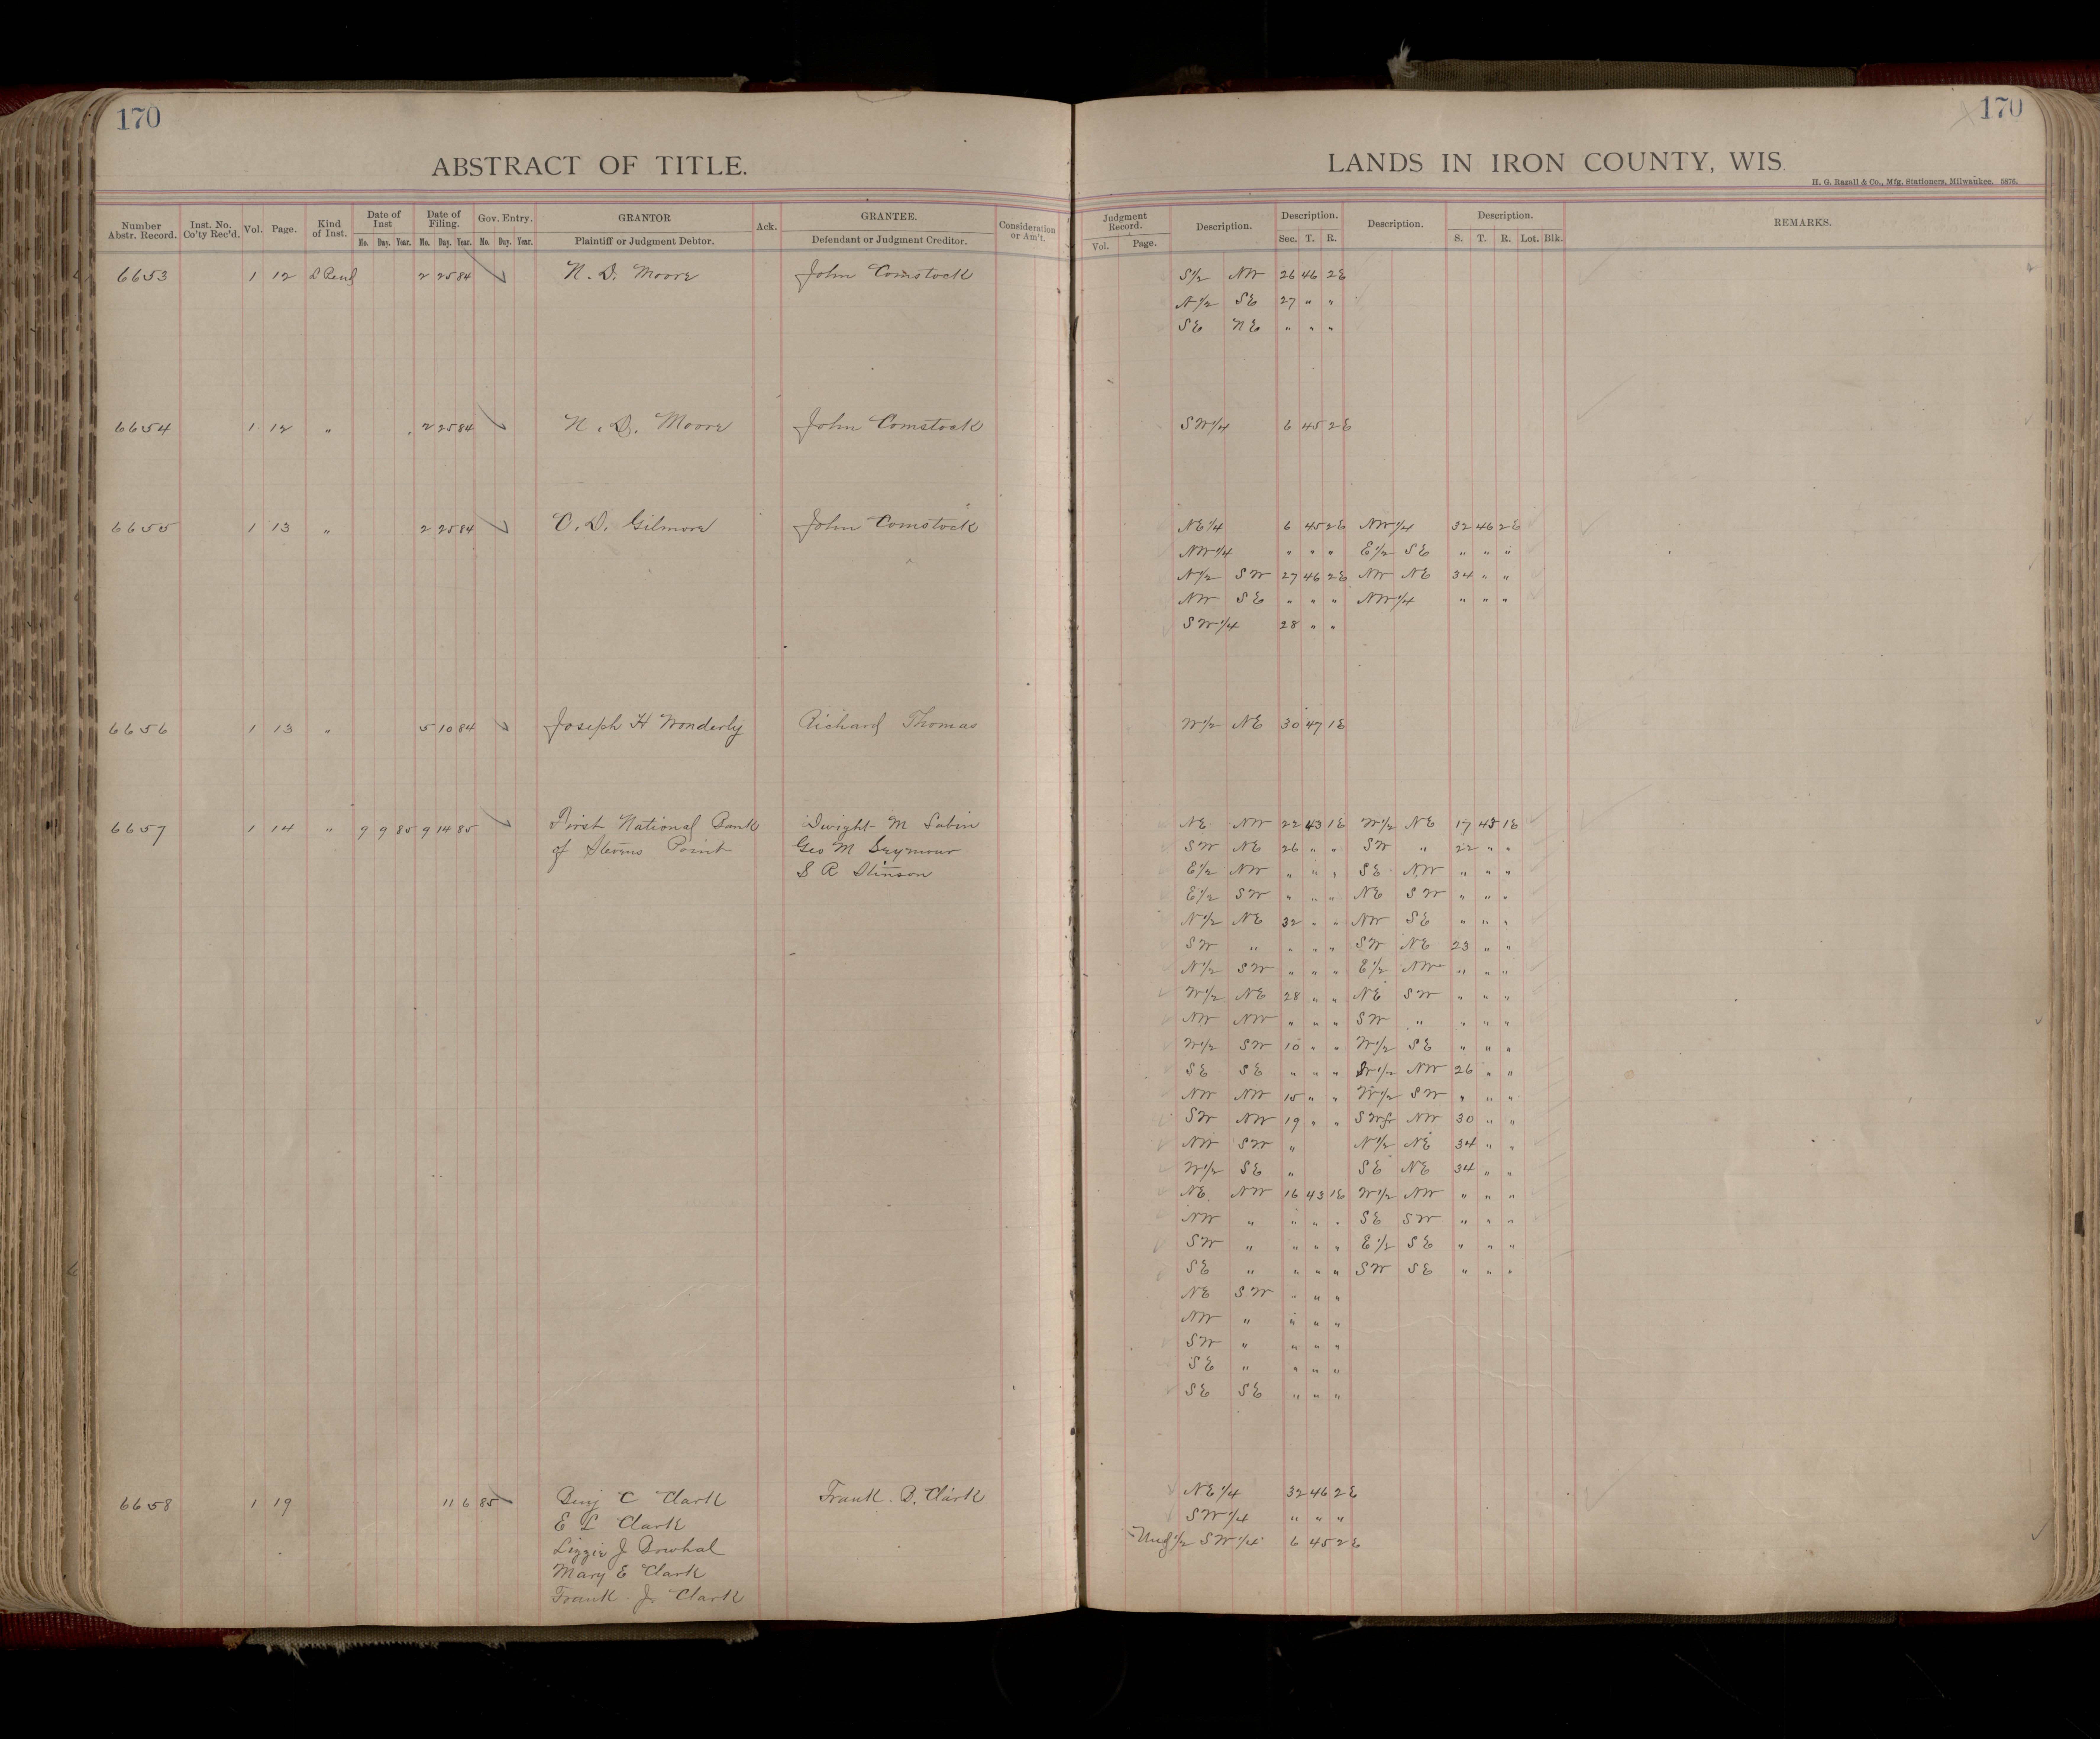 170
ABSTRACT OF TITLE.
170
LANDS IN IRON COUNTY, WIS.
H. G. Razall & Co., Mfg. Stationers, Milwaukee. 5876.
Number Abstr. Record. Inst. No. Co'ty Rec'd. Vol. Page. Kind of Inst. Date of Inst Mo. Day. Year. Date of Filing. Mo. Day. Year. Gov. Entry. Mo. Day. Year. GRANTOR Plaintiff or Judgment Debtor. Ack. GRANTEE. Defendant or Judgment Creditor. Consideration or Am't.
Judgment Record. Vol. Page. Description. Description. Sec. T. R. Description. Description. S. T. R. Lot. Blk. REMARKS.
6653 1 12 L Pend 2 25 84 N. D. Moore John Comstock
S 1/2 NW 26 46 2E
N 1/2 SE 27 " "
SE NE " " "
6654 1 12 " 2 25 84 N. D. Moore John Comstock
SW 1/4 6 45 2E
6655 1 13 " 2 25 84 C. D. Gilmore John Comstock
NE 1/4 6 45 2E NW 1/4 32 46 2E
NW 1/4 " " " E 1/2 SE " " "
N 1/2 SW 27 46 2E NW NE 34 " "
NW SE " " " NW 1/4 " " "
SW 1/4 28 " "
6656 1 13 " 5 10 84 Joseph H Wonderly Richard Thomas
W 1/2 NE 30 47 1E
6657 1 14 " 9 9 85 9 14 85 First National Bank Dwight M Sabin
of Stevens Point Geo M Seymour
S R Stinson
NE NW 22 43 1E W 1/2 NE 17 43 1E
SW NE 26 " " SW " 22 " "
E 1/2 NW " " " SE NW " " "
E 1/2 SW " " " NE SW " " "
N 1/2 NE 32 " " NW SE " " "
SW " " " " SW NE 23 " "
N 1/2 SW " " " E 1/2 NW " " "
W 1/2 NE 28 " " NE SW " " "
NW NW " " " SW " " " "
W 1/2 SW 10 " " W 1/2 SE " " "
SE SE " " " W 1/2 NW 26 " "
NW NW 15 " " W 1/2 SW " " "
SW NW 19 " " SW fr NW 30 " "
NW SW " N 1/2 NE 34 " "
W 1/2 SE " SE NE 34 " "
NE NW 16 43 1E W 1/2 NW " " "
NW " " " " SE SW " " "
SW " " " " E 1/2 SE " " "
SE " " " " SW SE " " "
NE SW " " "
NW " " " "
SW " " " "
SE " " " "
SE SE " " "
6658 1 19 11 6 85 Benj C Clark Frank B. Clark
E L Clark
Lizzie J
Mary E Clark
Frank J. Clark
NE 1/4 32 46 2E
SW 1/4 " " "
Und 1/2 SW 1/4 6 45 2E